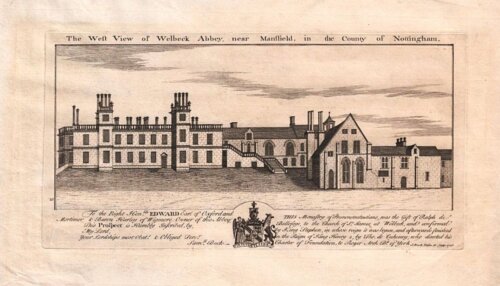 The West View of Welbeck Abbey, near Mansfield, in the County of Nottingham.
To the Right Hon.ble EDWARD Earl of Oxford and
Mortimer & Baron Harley of Wigmore, Owner of this Abbey
This Prospect is Humbly Inscribed, by
My Lord,
Your Lordships most Obed.t & Obliged Serv.t
Sam.l Buck
THIS Monastery of Præmonstratensians, was the Gift of Ralph de
to the Church of S.t James at Welbeck, and confirmed
King Stephen, in whose reign it was begun, and afterwards finished
in the Reign of King Henry 2. by Tho. de Cukeney, who directed his
Charter of Foundation, to Roger Arch Bp. of York.